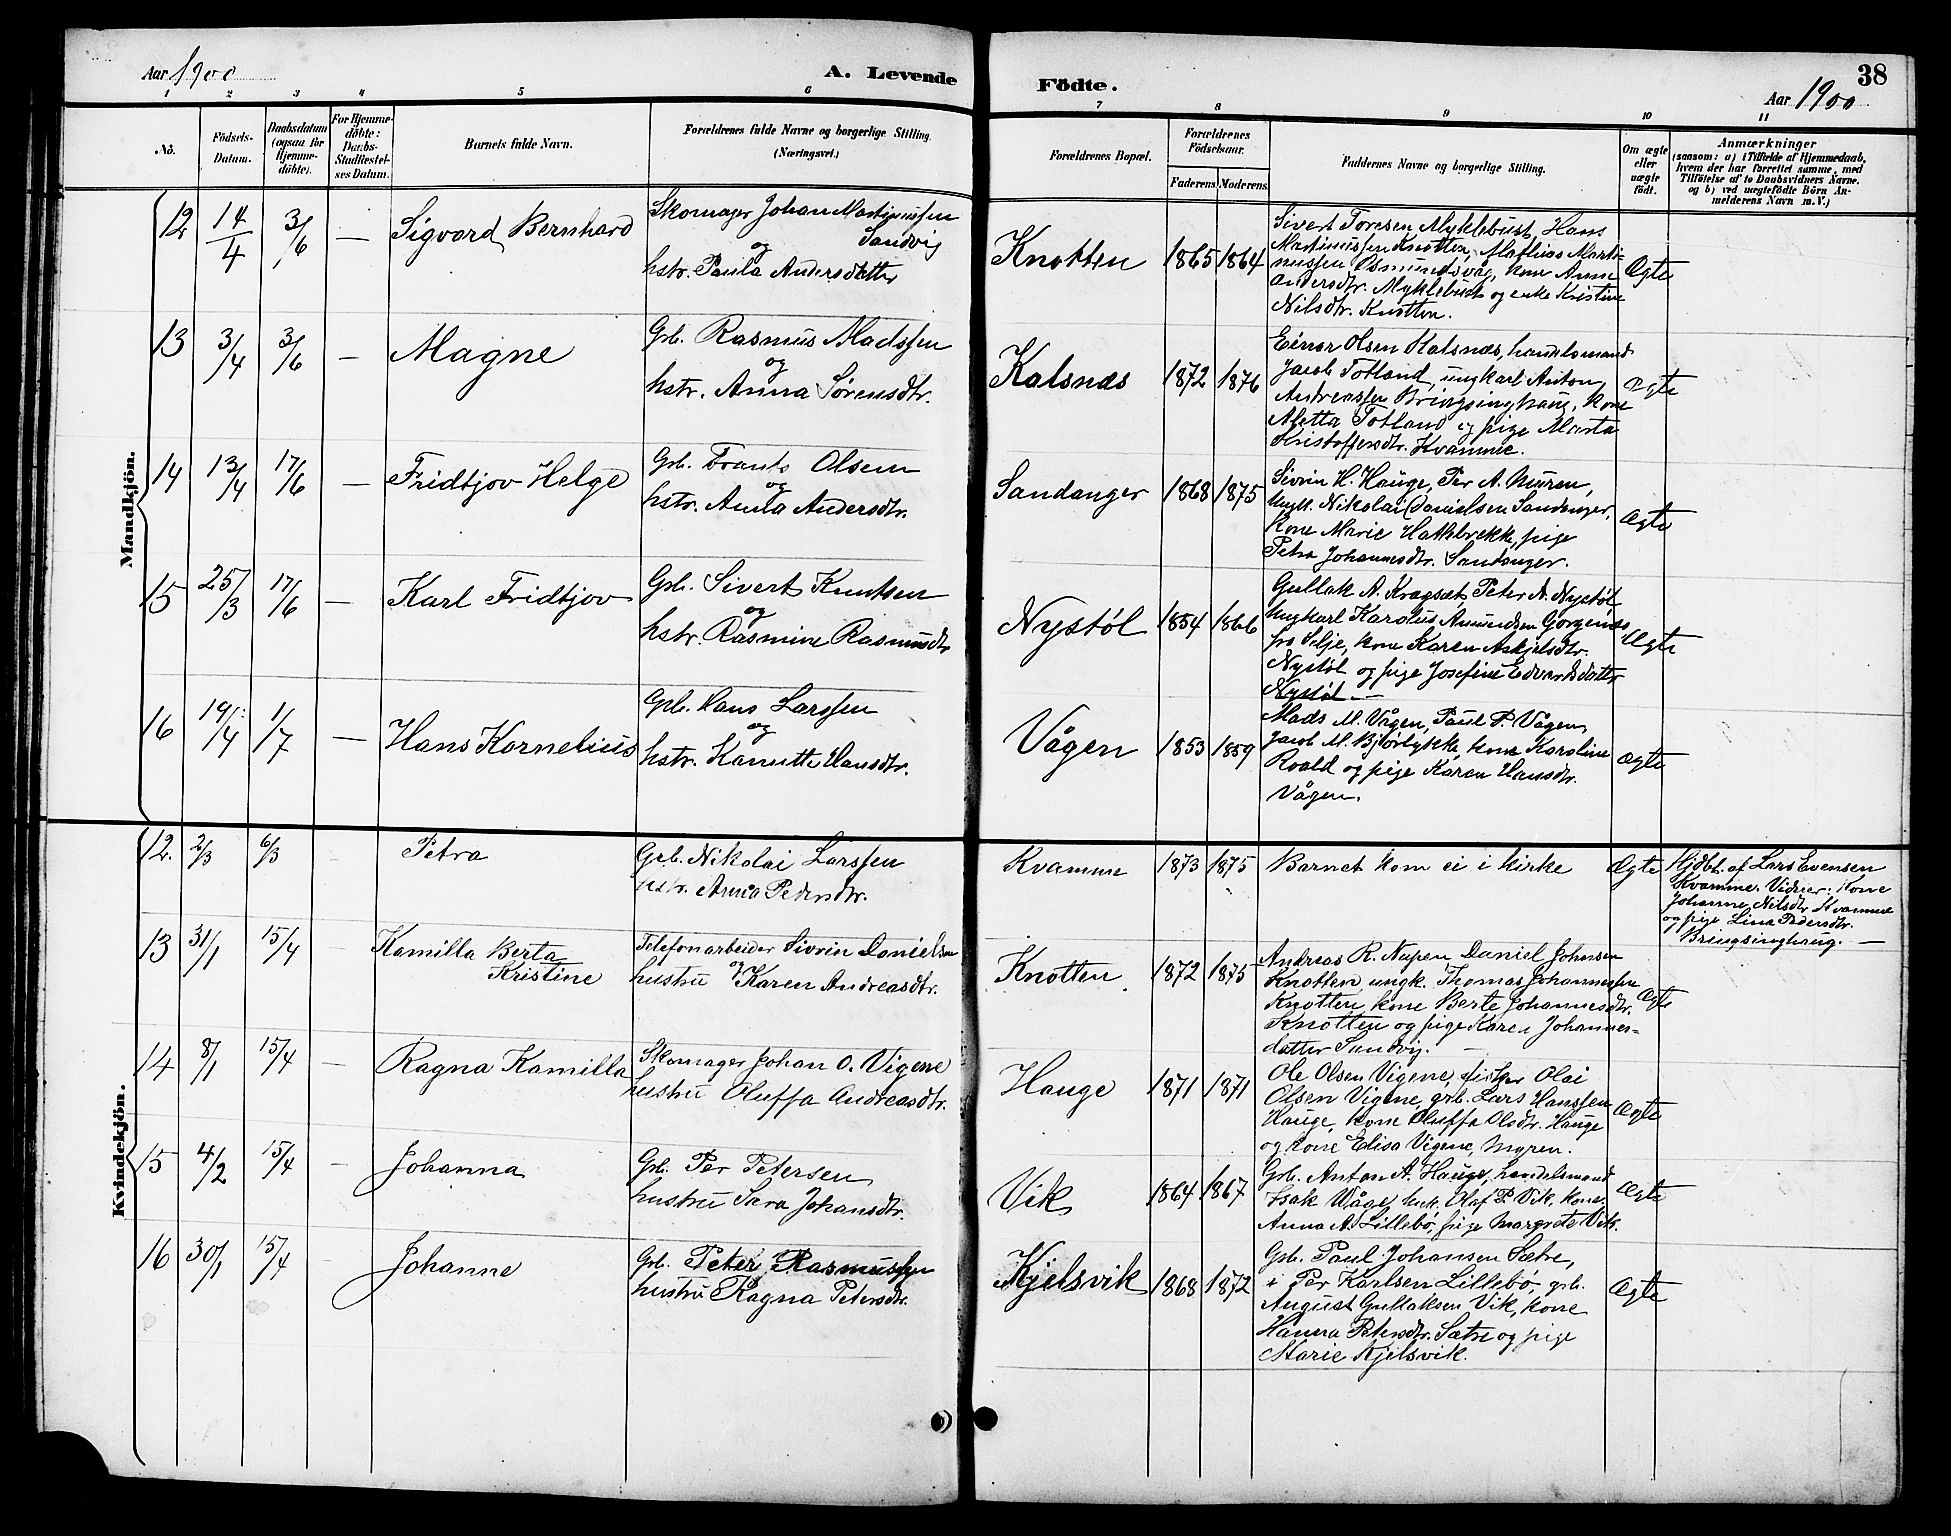 Aar 1900
A. Levende
1 2 3 4 5 6
No.
Födsels-
Datum.
Daabsdatum
(ogsaa for
Hjemme-
döbte).
For Hjemme-
döbte:
Daabs-
Stadfæstel-
ses Datum.
Barnets fulde Navn.
Forældrenes fulde Navne og borgerlige Stilling.
(Næringsvei.)
Mandkjön.
12 14/4 3/6 — Sigvard Bernhard
Skomager Johan Martinussen
og Sandvig
hstr. Paula Andersdatter
13 3/4 3/6 — Magne
Grb. Rasmus Madssen
og
hstr. Anna Sørensdtr.
14 13/4 17/6 — Fridtjov Helge
Grb. Frants Olsen
og
hstr. Anna Andersdtr.
15 25/3 17/6 — Karl Fridtjov
Grb. Sivert Knutsen
og
hstr. Rasmine Rasmusdtr
16 19/4 1/7 — Hans Kornelius
Grb. Hans Larssen
og
hstr. Hansdtr.
Kvindekjön.
12. 2/3 6/3 Petra
Grb. Nikolai Larssen
hstr. Anna Pedersdtr.
13 31/1 15/4 — Kamilla Berta
Kristine
Telefonarbeider Sivrin Danielsen
og
hustru Karen Andreasdtr.
14 8/1 15/4 — Ragna Kamilla
Skomager Johan O. Vigene
hustru Oluffa Andreasdtr.
15 4/2 15/4 — Johanna
Grb. Per Petersen
hustru Sara Johansdtr.
16 30/1 15/4 Johanne
Grb. Peter Rasmussen
hustru Ragna Petersdtr.
Födte.
38
Aar 1900
7 8 9 10 11
Forældrenes Bopæl.
Forældrenes
Födselsaar.
Faderens. Moderens.
Faddernes Navne og borgerlige Stilling.
Om ægte
eller
uægte
födt.
Anmærkninger
(saasom: a) i Tilfælde af Hjemmedaab,
hvem der har forrettet samme, med
Tilföielse af to Daabsvidners Navne.
og b) ved uægtefödte Börn An-
melderens Navn m. V.)
Knotten 1865 1864 Ægte
Sivert Toresen Myklebust, Hans
Martinussen Knotten, Mathias Marti-
nussen Osmundsvåg, kone Anne
Andersdtr. Myklebust og enke Kristine
Nilsdtr. Knotten.
Kalsnæs 1872 1876 Ægte
Einar Olsen Kalsnæs, handelsmand
Jacob Totland, ungkarl Anton
Andreassen Bringsinghaug, kone
Aletta Totland og pige Marta
Kristoffersdtr. Kvamme.
Sandanger 1868 1875 Ægte
Sivrin H. Hauge, Per A. Muren,
ungk. Nikolai Danielsen Sandanger,
kone Marie Hatlebrekk, pige
Petra Johannesdtr. Sandanger.
Nystøl 1854 1866 Ægte
Gullak A. Kragsæt, Peter A. Nystøl
ungkarl Karolus Amundsen
fra Selje, kone Karen Askjelsdtr.
Nystøl og pige Josefine Edvardsdatter
Nystøl. —
Vågen 1853 1859 Ægte
Mads M. Vågen, Paul P. Vågen,
Jacob M. Bjørlykke, kone Karoline
Roald og pige Karen Hansdtr.
Vågen.
Kvamme 1873 1875 Barnet kom ei i kirke Ægte
Hjdbt. af Lars Evensen
Kvamme. Vidner: Kone
Johanne Nilsdtr Kvamme
og pige Lina Pedersdtr.
Bringsinghaug. —
Knotten 1872 1875 Ægte
Andreas R. Nupen, Daniel Johansen
Knotten, ungk. Thomas Johannessen
Knotten, kone Berte Johannesdtr.
Knotten og pige Karen Johannes-
datter Sandvig. —
Hauge 1871 1871 Ægte
Ole Olsen Vigene, fisker Olai
Olsen Vigene, grb. Lars Hanssen
Hauge, kone Oluffa Olsdtr. Hauge
og kone Elisa Vigene, Myren.
Vik 1864 1867 Ægte
Grb. Anton A. Hauge, handelsmand
Isak Våge, ungk. Olaf P. Vik, kone
Anna A. Lillebø, pige Margrete Vik.
Kjelsvik 1868 1872 Ægte
Grb. Paul Johansen Sætre,
i Per Karlsen Lillebø, grb.
August Gullaksen Vik, kone
Hanna Petersdtr. Sætre og pige
Marie Kjelsvik.